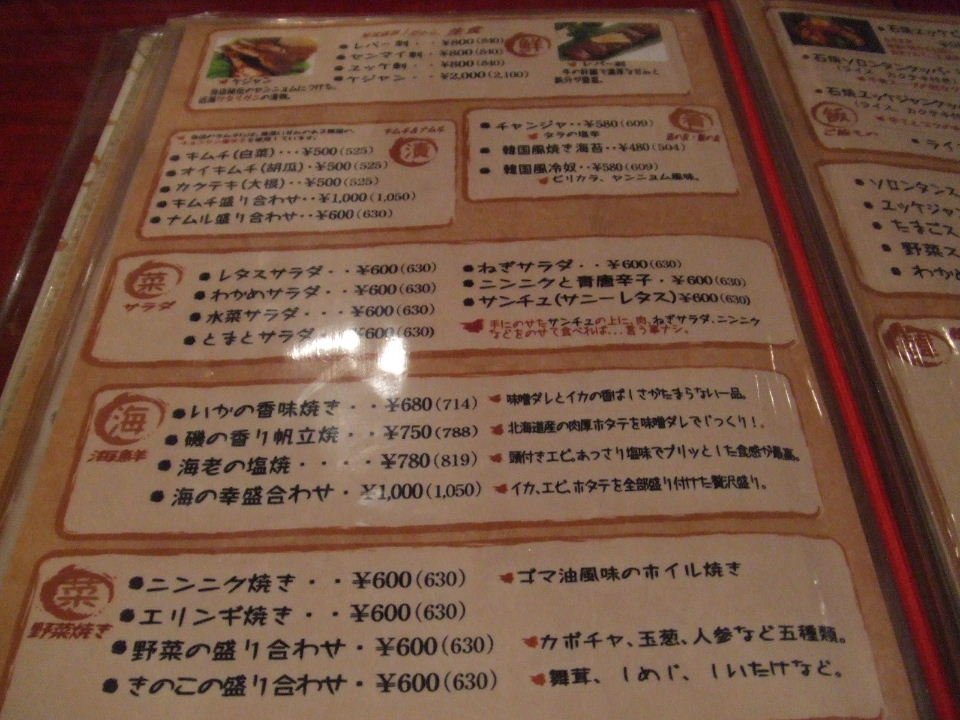 鮮
レバー刺・・¥800(840)
センマイ刺・・¥800(840)
ユッケ刺・・¥800(840)
ケジャン・・¥2,000(2,100)
ケジャン
キムチ&ナムル
漬
キムチ(白菜)・・・¥500(525)
オイキムチ(胡瓜)・¥500(525)
カクテキ(大根)・・¥500(525)
キムチ盛り合わせ・・¥1,000(1,050)
ナムル盛り合わせ・・¥600(630)
チャンジャ・・¥580(609)
タラの塩辛
韓国風焼き海苔・・¥480(504)
韓国風冷奴・・¥580(609)
ピリカラ、ヤンニョム風味。
菜
サラダ
レタスサラダ・・¥600(630)
わかめサラダ・・¥600(630)
水菜サラダ・・¥600(630)
とまとサラダ・・¥600(630)
ねぎサラダ・・¥600(630)
ニンニクと青唐辛子・¥600(630)
サンチュ(サニーレタス)¥600(630)
手にのせたサンチュの上に、肉、ねぎサラダ、ニンニク
などをのせて食べれば...言う事ナシ。
海
海鮮
いかの香味焼き・・¥680(714)
味噌ダレとイカの香ばしさがたまらない一品。
磯の香り帆立焼・・¥750(788)
北海道産の肉厚ホタテを味噌ダレでじっくり!。
海老の塩焼・・・・¥780(819)
頭付きエビ。あっさり塩味でプリッとした食感が最高。
海の幸盛合わせ・¥1,000(1,050)
イカ、エビ、ホタテを全部盛り付けた贅沢盛り。
菜
野菜焼き
ニンニク焼き・・¥600(630)
ゴマ油風味のホイル焼き
エリンギ焼き・・¥600(630)
野菜の盛り合わせ・¥600(630)
カボチャ、玉葱、人参など五種類。
きのこの盛り合わせ・¥600(630)
舞茸、しめじ、しいたけなど。
飯
ご飯もの
ライ
ソロンタンス
ユッケジャン
たまごス
野菜ス
わかめ